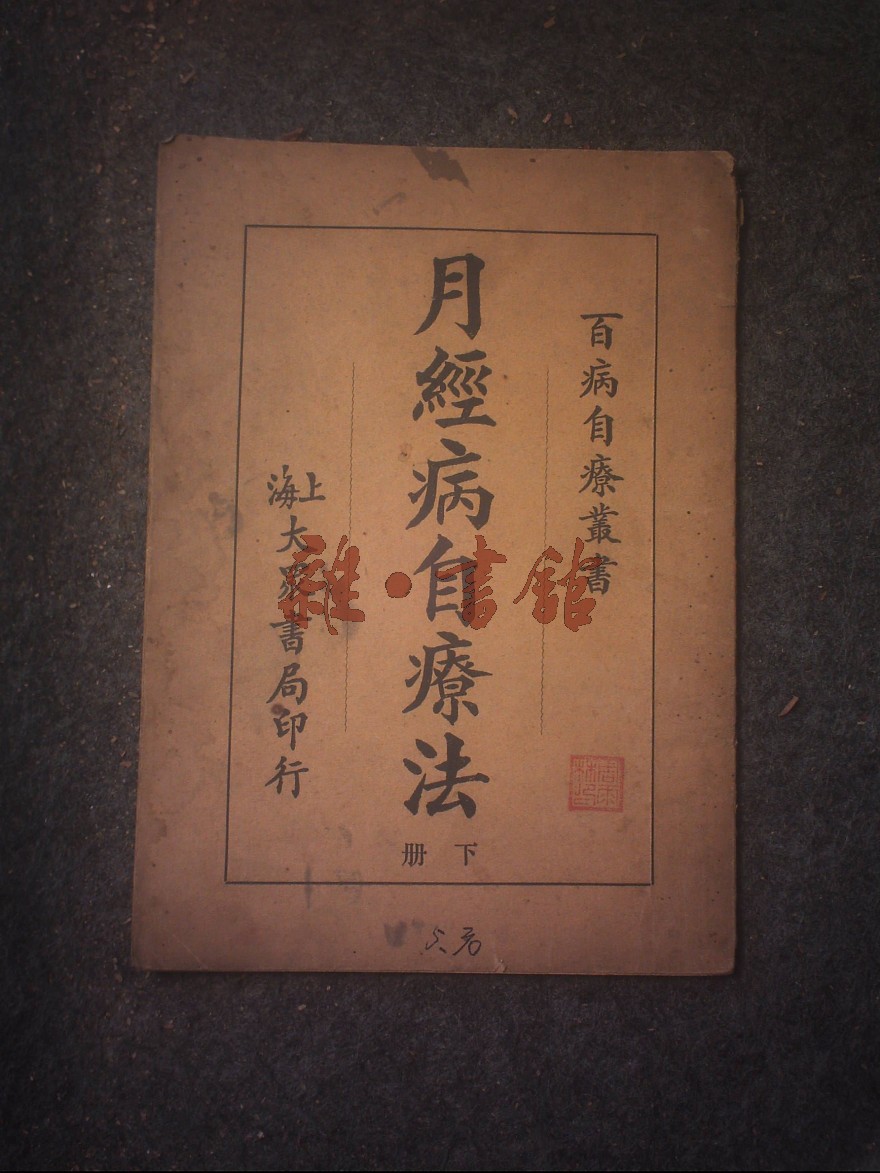 百病自療叢書
月經病自療法
下册
上海大眾書局印行
雜·書館